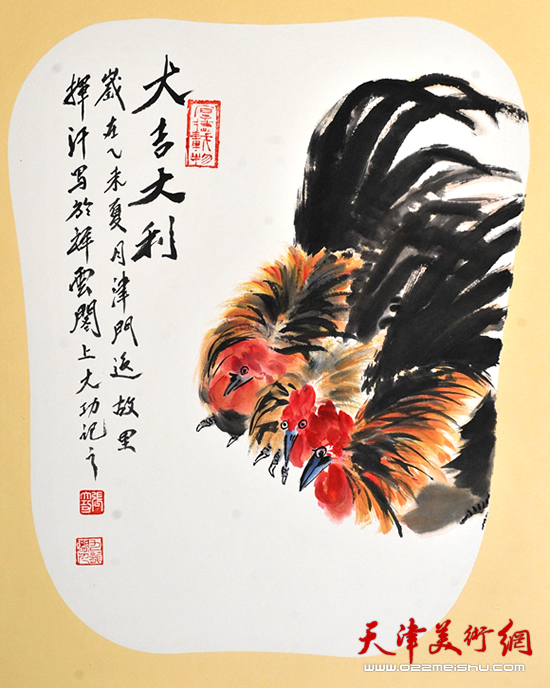 大吉大利
歲在乙未夏月津門返故里
揮汗写於祥雲閣上大功记之
厚德載物
天津美術網
www.022meishu.com